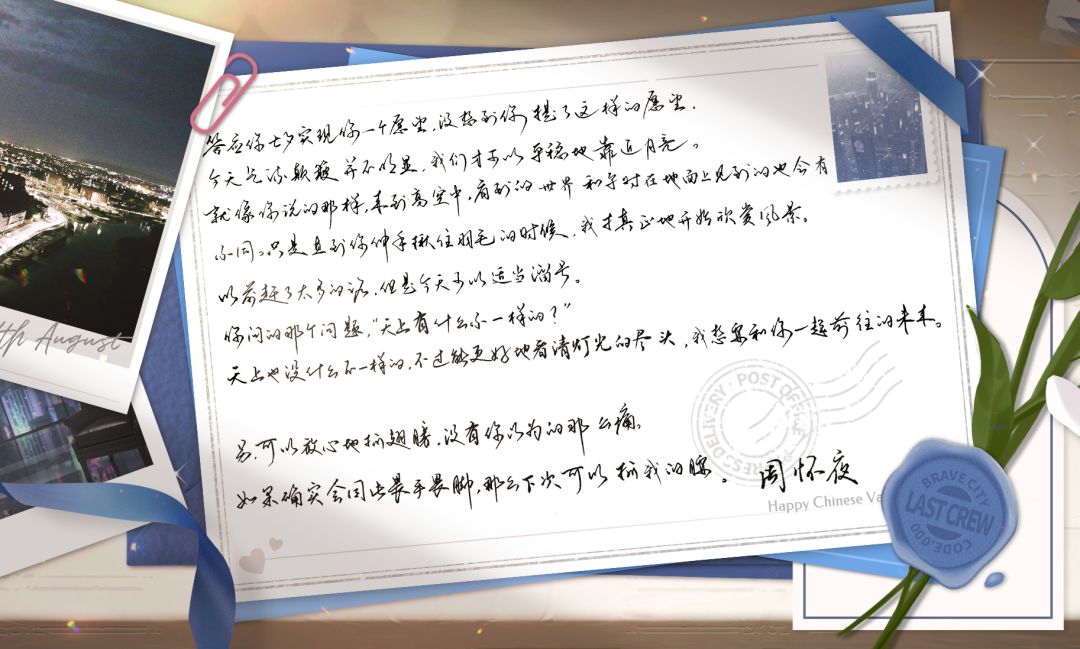 答应你七夕实现你一个愿望，没想到你提了这样的愿望。
今天气流颠簸并不明显，我们才可以平稳地靠近月亮。
就像你说的那样，来到高空中，看到的世界和平时在地面上见到的也会有
不同。只是直到你伸手揪住羽毛的时候，我才真正地开始欣赏风景。
以前赶了太多的路，但是今天可以适当溜号。
你问的那个问题，“天上有什么不一样的？”
天上也没什么不一样的，不过能更好地看清灯光的尽头，我想要和你一起前往的未来。
另，可以放心地抓翅膀，没有你以为的那么痛。
如果确实会因此畏手畏脚，那么下次可以抓我的腰。
周怀夜
th August
POST OFFICE
Happy Chinese Va
BRAVE CITY
LAST CREW
CODE.000